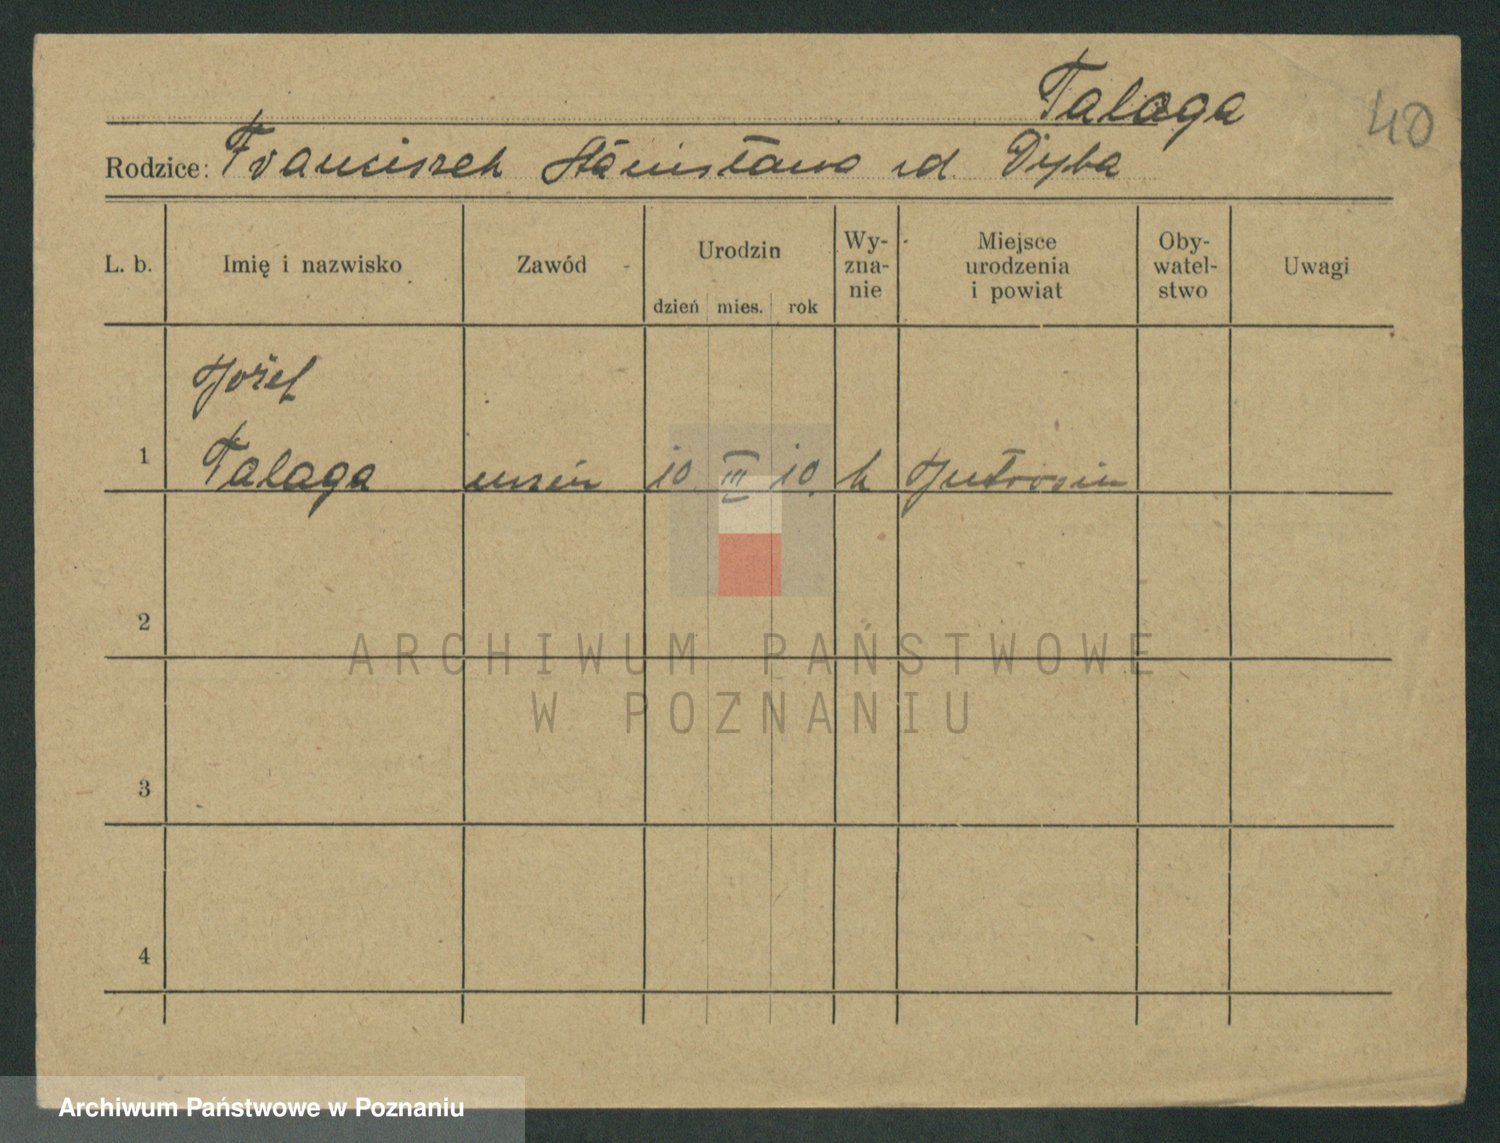 Talaga
40
Rodzice: Franciszek Stanisława rd. Dyba
L. b. Imię i nazwisko Zawód Urodzin dzień mies. rok Wy-zna-nie Miejsce urodzenia i powiat Oby-watel-stwo Uwagi
Józef
1 Talaga uczeń 10 III 10. k Jutrosin
2
ARCHIWUM PAŃSTWOWE
W POZNANIU
3
4
Archiwum Państwowe w Poznaniu